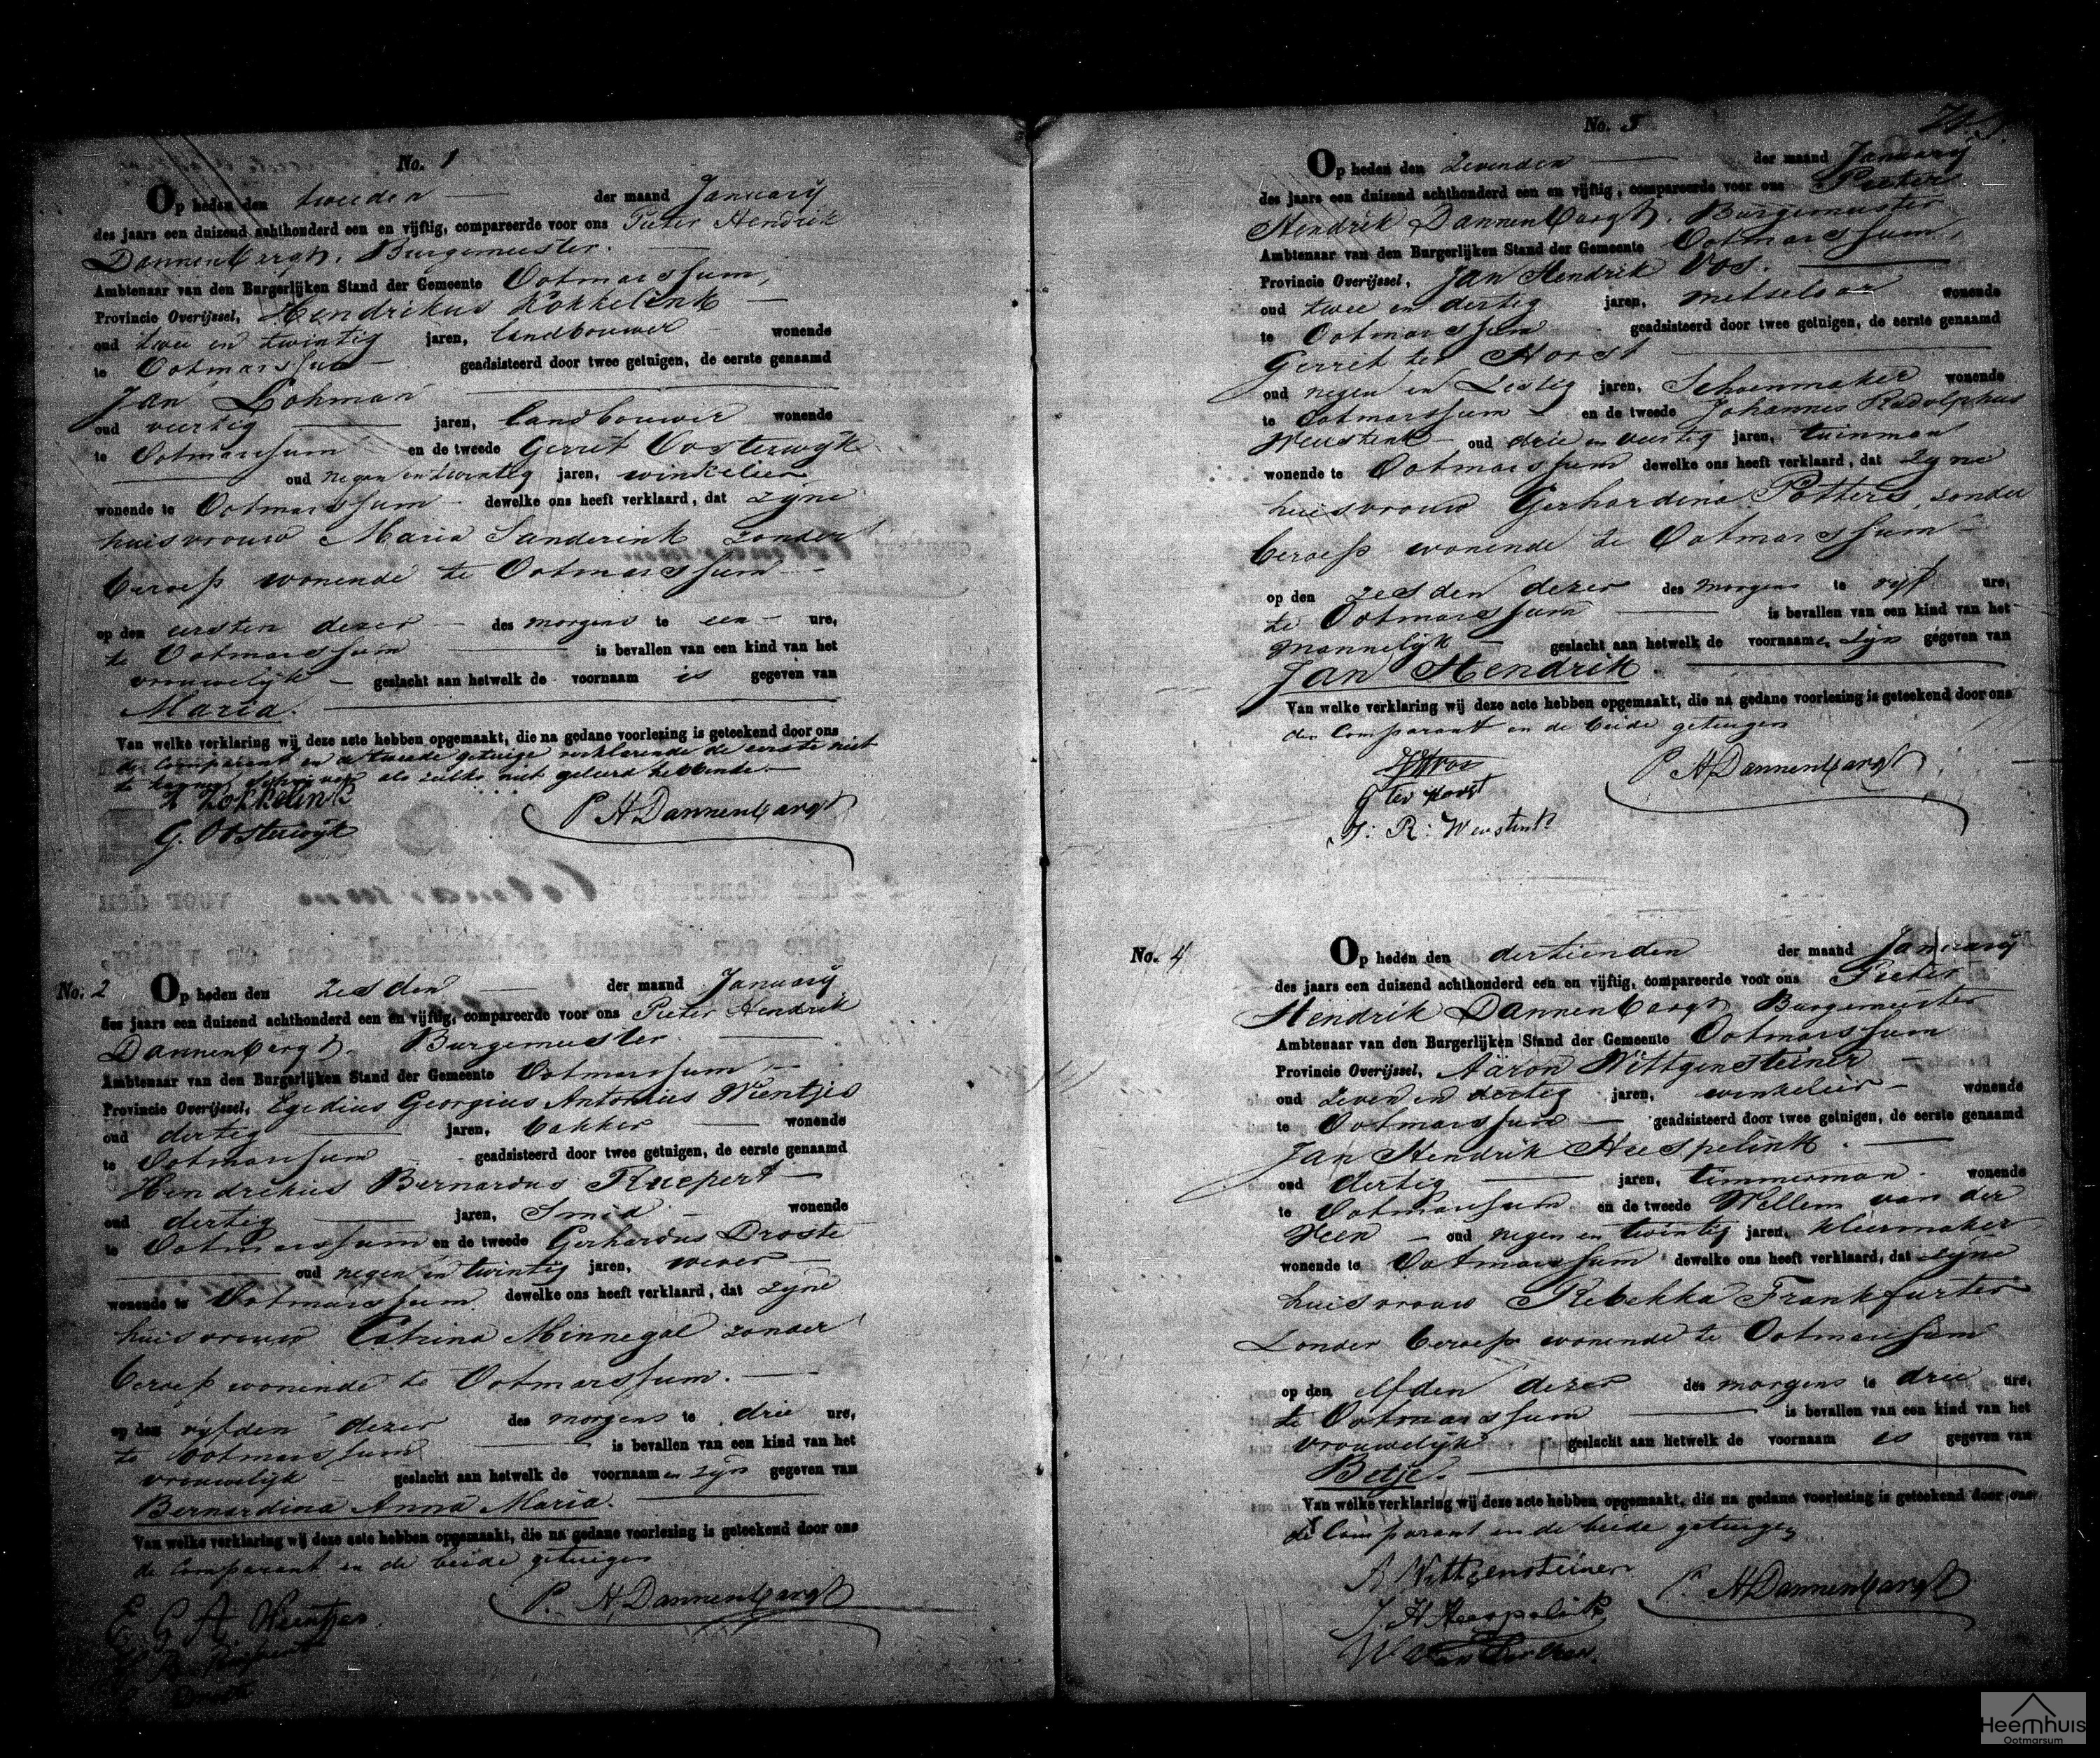 No. 1
Op heden den tweeden der maand January
des jaars een duizend achthonderd een en vijftig, compareerde voor ons Pieter Hendrik
Dannenbargh, Burgemeester.
Ambtenaar van den Burgerlijken Stand der Gemeente Ootmarssum,
Provincie Overijssel, Hendrikus Kokkelink
oud twee en twintig jaren, landbouwer wonende
te Ootmarssum geadsisteerd door twee getuigen, de eerste genaamd
Jan Lohman
oud veertig jaren, landbouwer wonende
te Ootmarssum en de tweede Gerrit Oosterwijk
oud negen en twintig jaren, winkelier
wonende te Ootmarssum dewelke ons heeft verklaard, dat zijne
huisvrouw Maria Sanderink zonder
beroep wonende te Ootmarssum
op den eersten dezer des morgens te een ure,
te Ootmarssum is bevallen van een kind van het
vrouwelijk geslacht aan hetwelk de voornaam is gegeven van
Maria.
Van welke verklaring wij deze acte hebben opgemaakt, die na gedane voorlezing is geteekend door ons
de Comparant en de tweede getuige verklarende de eerste niet
te kunnen schrijven als zulks niet geleerd hebbende.
H Kokkelink
G. Oosterwijk
P H Dannenbargh
No. 2
Op heden den zesden der maand January
des jaars een duizend achthonderd een en vijftig, compareerde voor ons Pieter Hendrik
Dannenbargh. Burgemeester.
Ambtenaar van den Burgerlijken Stand der Gemeente Ootmarssum,
Provincie Overijssel, Egedius Georgius Antonius Wientjes
oud dertig jaren, bakker wonende
te Ootmarssum geadsisteerd door twee getuigen, de eerste genaamd
Hendrikus Bernardus Ruepert
oud dertig jaren, Smid wonende
te Ootmarssum en de tweede Gerhardus Droste
oud negen en twintig jaren, wever
wonende te Ootmarssum dewelke ons heeft verklaard, dat zijne
huisvrouw Catrina Minnegal zonder
beroep wonende te Ootmarssum.
op den vijfden dezer des morgens te drie ure,
te Ootmarssum is bevallen van een kind van het
vrouwelijk geslacht aan hetwelk de voornaamen zijn gegeven van
Bernardina Anna Maria.
Van welke verklaring wij deze acte hebben opgemaakt, die na gedane voorlezing is geteekend door ons
de Comparant en de beide getuigen
E G A Wientjes.
P. H Dannenbargh
Droste
No. 3
Op heden den zevenden der maand January
des jaars een duizend achthonderd een en vijftig, compareerde voor ons Pieter
Hendrik Dannenbargh, Burgemeester
Ambtenaar van den Burgerlijken Stand der Gemeente Ootmarssum,
Provincie Overijssel, Jan Hendrik Vos.
oud twee en dertig jaren, metselaar wonende
te Ootmarssum geadsisteerd door twee getuigen, de eerste genaamd
Gerrit ter Horst
oud negen en zestig jaren, Schoenmaker wonende
te Ootmarssum en de tweede Johannes Radolphus
Weustink oud drie en veertig jaren, tuinman
wonende te Ootmarssum dewelke ons heeft verklaard, dat zijne
huisvrouw Gerhardina Potters, zonder
beroep wonende te Ootmarssum
op den zesden dezer des morgens te vijf ure,
te Ootmarssum is bevallen van een kind van het
mannelijk geslacht aan hetwelk de voornaamen zijn gegeven van
Jan Hendrik.
Van welke verklaring wij deze acte hebben opgemaakt, die na gedane voorlezing is geteekend door ons
den Comparant en de beide getuigen
JHVos
G ter Horst
J: R: Weustink
P H Dannenbargh
No. 4
Op heden den dertienden der maand January
des jaars een duizend achthonderd een en vijftig, compareerde voor ons Pieter
Hendrik Dannenbargh, Burgemeester
Ambtenaar van den Burgerlijken Stand der Gemeente Ootmarssum
Provincie Overijssel, Aäron Wittgensteiner
oud zeven en dertig jaren, winkelier wonende
te Ootmarssum geadsisteerd door twee getuigen, de eerste genaamd
Jan Hendrik Heespelink.
oud dertig jaren, timmerman wonende
te Ootmarssum en de tweede Willem van der
Veen oud negen en twintig jaren, kleermaker
wonende te Ootmarssum dewelke ons heeft verklaard, dat zijne
huisvrouw Rebekka Frankfurter
Zonder beroep wonende te Ootmarssum
op den elfden dezer des morgens te drie ure,
te Ootmarssum is bevallen van een kind van het
vrouwelijk geslacht aan hetwelk de voornaam is gegeven van
Betje.
Van welke verklaring wij deze acte hebben opgemaakt, die na gedane voorlezing is geteekend door ons
de Comparant en de beide getuigen
A Wittgensteiner
J. H Heespelink
W Van der Veen.
P. H Dannenbargh
Heemhuis
Ootmarsum